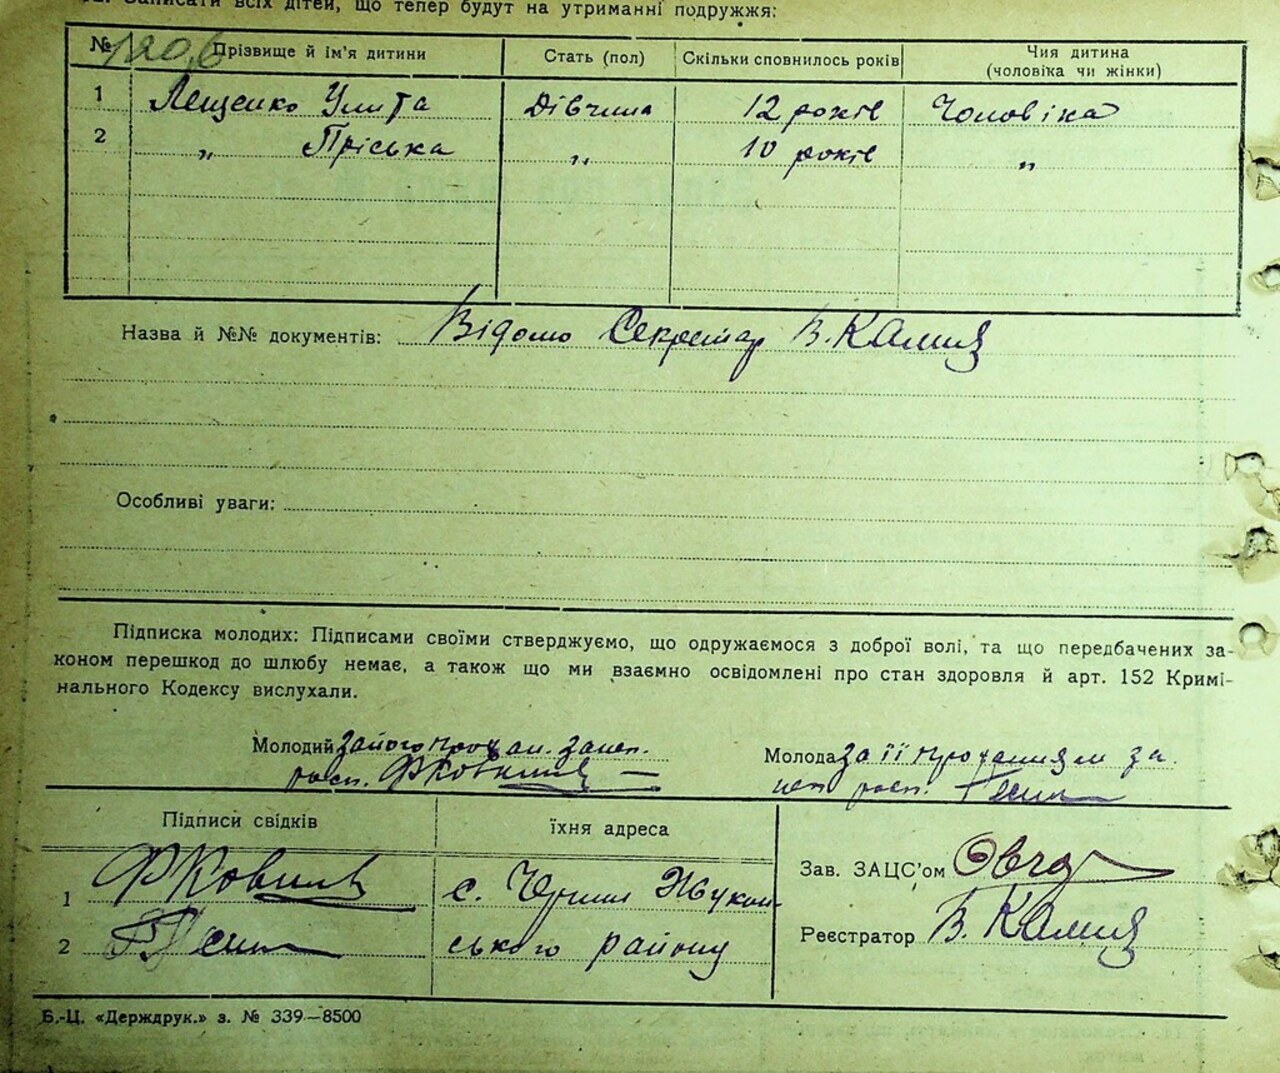 Записати всіх дітей, що тепер будут на утриманні подружжя:
№ Прізвище й ім'я дитини Стать (пол) Скільки сповнилось років Чия дитина
(чоловіка чи жінки)
1 Лещенко Улита Дівчина 12 років Чоловіка
2 „ Пріська „ 10 років „
Назва й №№ документів: Відомо Секретар В. Калита
Особливі уваги:
Підписка молодих: Підписами своїми стверджуємо, що одружаємося з доброї волі, та що передбачених за-
коном перешкод до шлюбу немає, а також що ми взаємно освідомлені про стан здоровля й арт. 152 Кримі-
нального Кодексу вислухали.
Молодий за його Молода за її проханням за
розп. розп.
Підписи свідків їхня адреса
Зав. ЗАЦС'ом
1 с.
Реєстратор В. Калита
2 ського району
Б.-Ц. «Держдрук.» з. № 339—8500